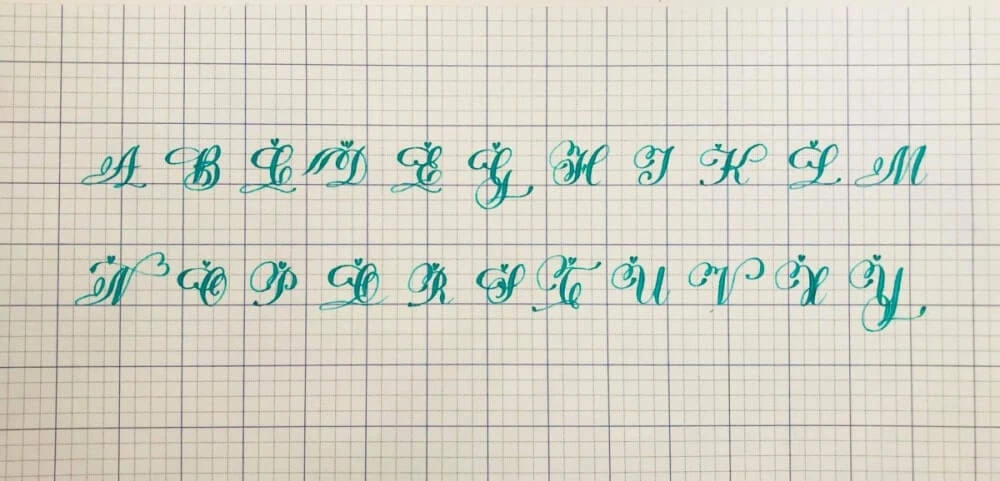 A B C D E G H I K L M
N O P Q R S T U V X Y